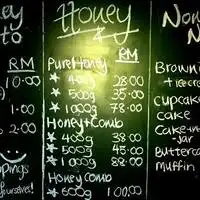 ney
to
RM
10.00
1.00
2.00
ppings
Yourselves!
Honey
RM
Pure Honey
★ 400g 28.00
★ 500g 35.00
★ 1000g 78.00
Honey+Comb
★ 400g 38.00
★ 500g
★ 1000g 88.00
Honey Comb
★ 600g 100.00
No
N
Browni
+ Icecre
Cupcake
Cake
Cake-in-
-Jar
Butterco
Muffin